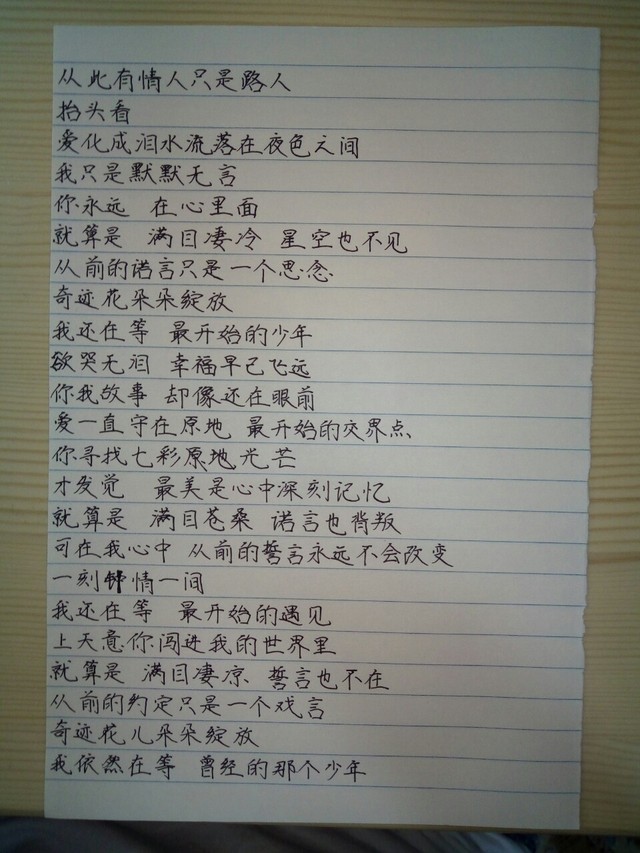 从此有情人只是路人
抬头看
爱化成泪水流落在夜色之间
我只是默默无言
你永远 在心里面
就算是 满目凄冷 星空也不见
从前的诺言只是一个思念
奇迹花朵朵绽放
我还在等 最开始的少年
欲哭无泪 幸福早已飞远
你我故事 却像还在眼前
爱一直守在原地 最开始的交界点
你寻找七彩原地光芒
才发觉 最美是心中深刻记忆
就算是 满目苍桑 诺言也背叛
可在我心中 从前的誓言永远不会改变
一刻钟情一间
我还在等 最开始的遇见
上天意你闯进我的世界里
就算是 满目凄凉 誓言也不在
从前的约定只是一个戏言
奇迹花儿朵朵绽放
我依然在等 曾经的那个少年